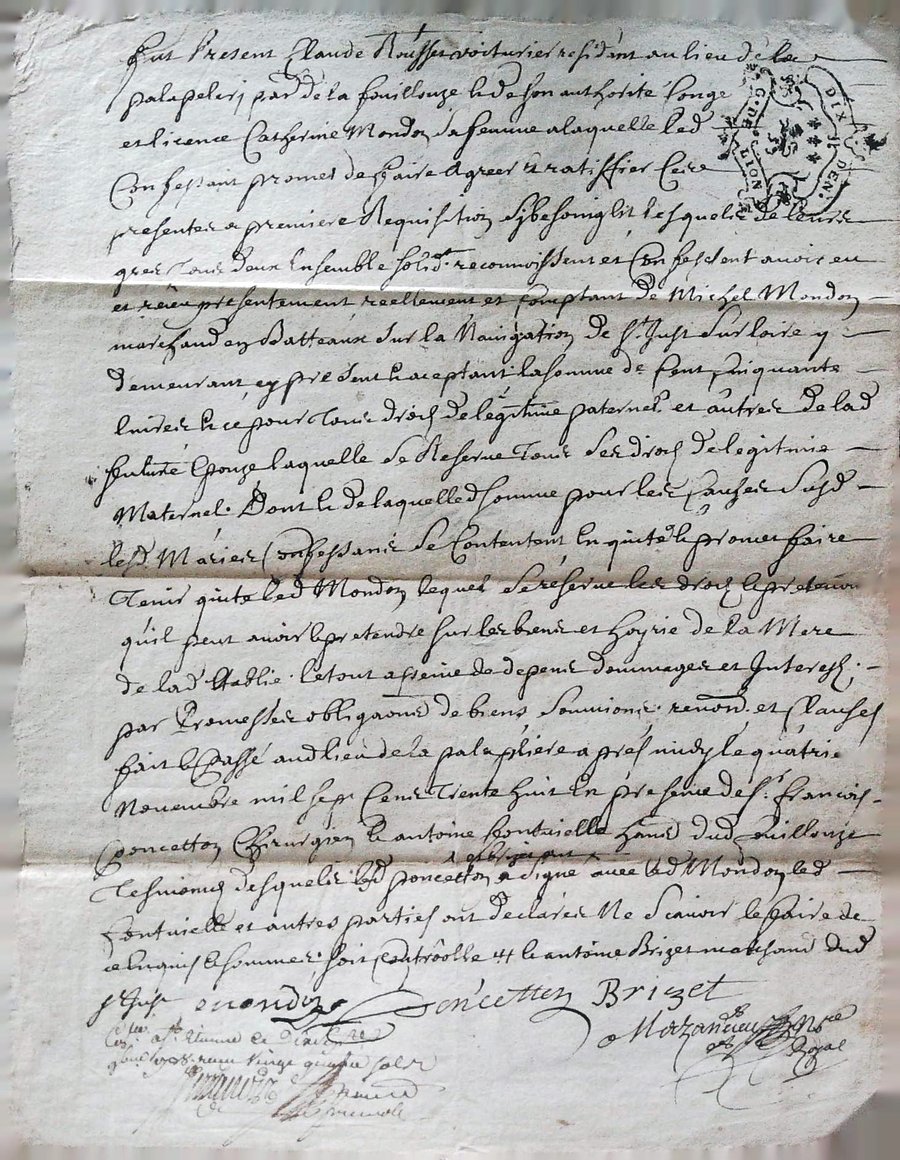 Fut Present Claude Rousset voiturier residant au lieu de la
palapeliere par de la fouillouze le de son authorité Conge
et licence Catherine Mondon sa femme a laquelle led
Confessant promet de faire Agreer et ratiffier Ces
presentes a premiere Requisition sy besoing est lesquels de leurs
grez tous deux Ensemble solid.t reconnoissent et Confessent avoir eu
et reçeu presentement reellement et comptant de Michel Mondon
marchand en Batteaux sur la Navigation de S.t Just sur loire y
demeurant, cy present et aceptant la somme de Cent cinquante
livres et ce pour tous droits de légitime paternel. et autres de lad
future Epouze laquelle se Reserve tous ses droits de legitime
Maternel. Dont et de laquelle d somme pour les Causes susd
lesd Mariez Confessants se Contentent En quitte et promet faire
tenir quite led Mondon lequel se réserve les droits et pretention
quil peut avoir et pretendre sur les biens et hoyrie de la Mere
de lad Etablie. le tout a peine de depens dommages et Interests.
par Promesses obligaons de biens soumions. renons. et Clauses
fait et Passé aud lieu de la palapliere apres midy le quatrie
Novembre mil sept Cens trente huit En presence de S.r François
Poncetton Chirurgien et antoine fontvielle hans dud fouillouze
Tesmoings desquels led poncetton a signé avec led Mondon led
fontvielle et autres parties ont declarés Ne Scavoir le faire de
ce Enquis et sommes. soit Controolle et antoine Brizet marchand dud
S.t Just mondon Poncetton Brizet
Mazandieu No.re
Royal
vingt quatre sols
G. DE LION
DIX II DEN.